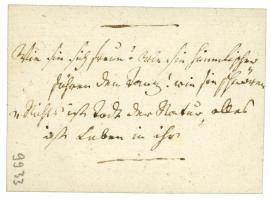 Wie sie sich freun! Wie sie himmlischer
führen den Tanz! wie sie schweben
Nichts ist Todt der Natur, alles
ist Leben in ihr
9933